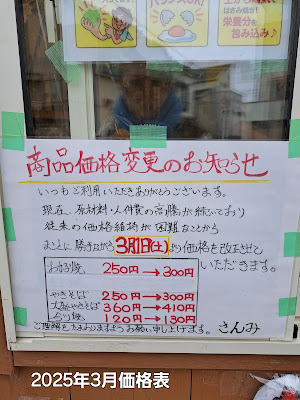 はさみ焼き!
栄養分を
包み込み♪
商品価格変更のお知らせ
いつもご利用いただきありがとうございます。
現在、原材料・人件費の高騰が続いており
従来の価格維持が困難なことから
まことに勝手ながら3月1日(土)より価格を改正させて
いただきます。
お好焼 250円→300円
やきそば 250円→300円
大盛やきそば 360円→410円
120円→130円
ご理解をたまわりますようお願い申し上げます。 さんみ
2025年3月価格表